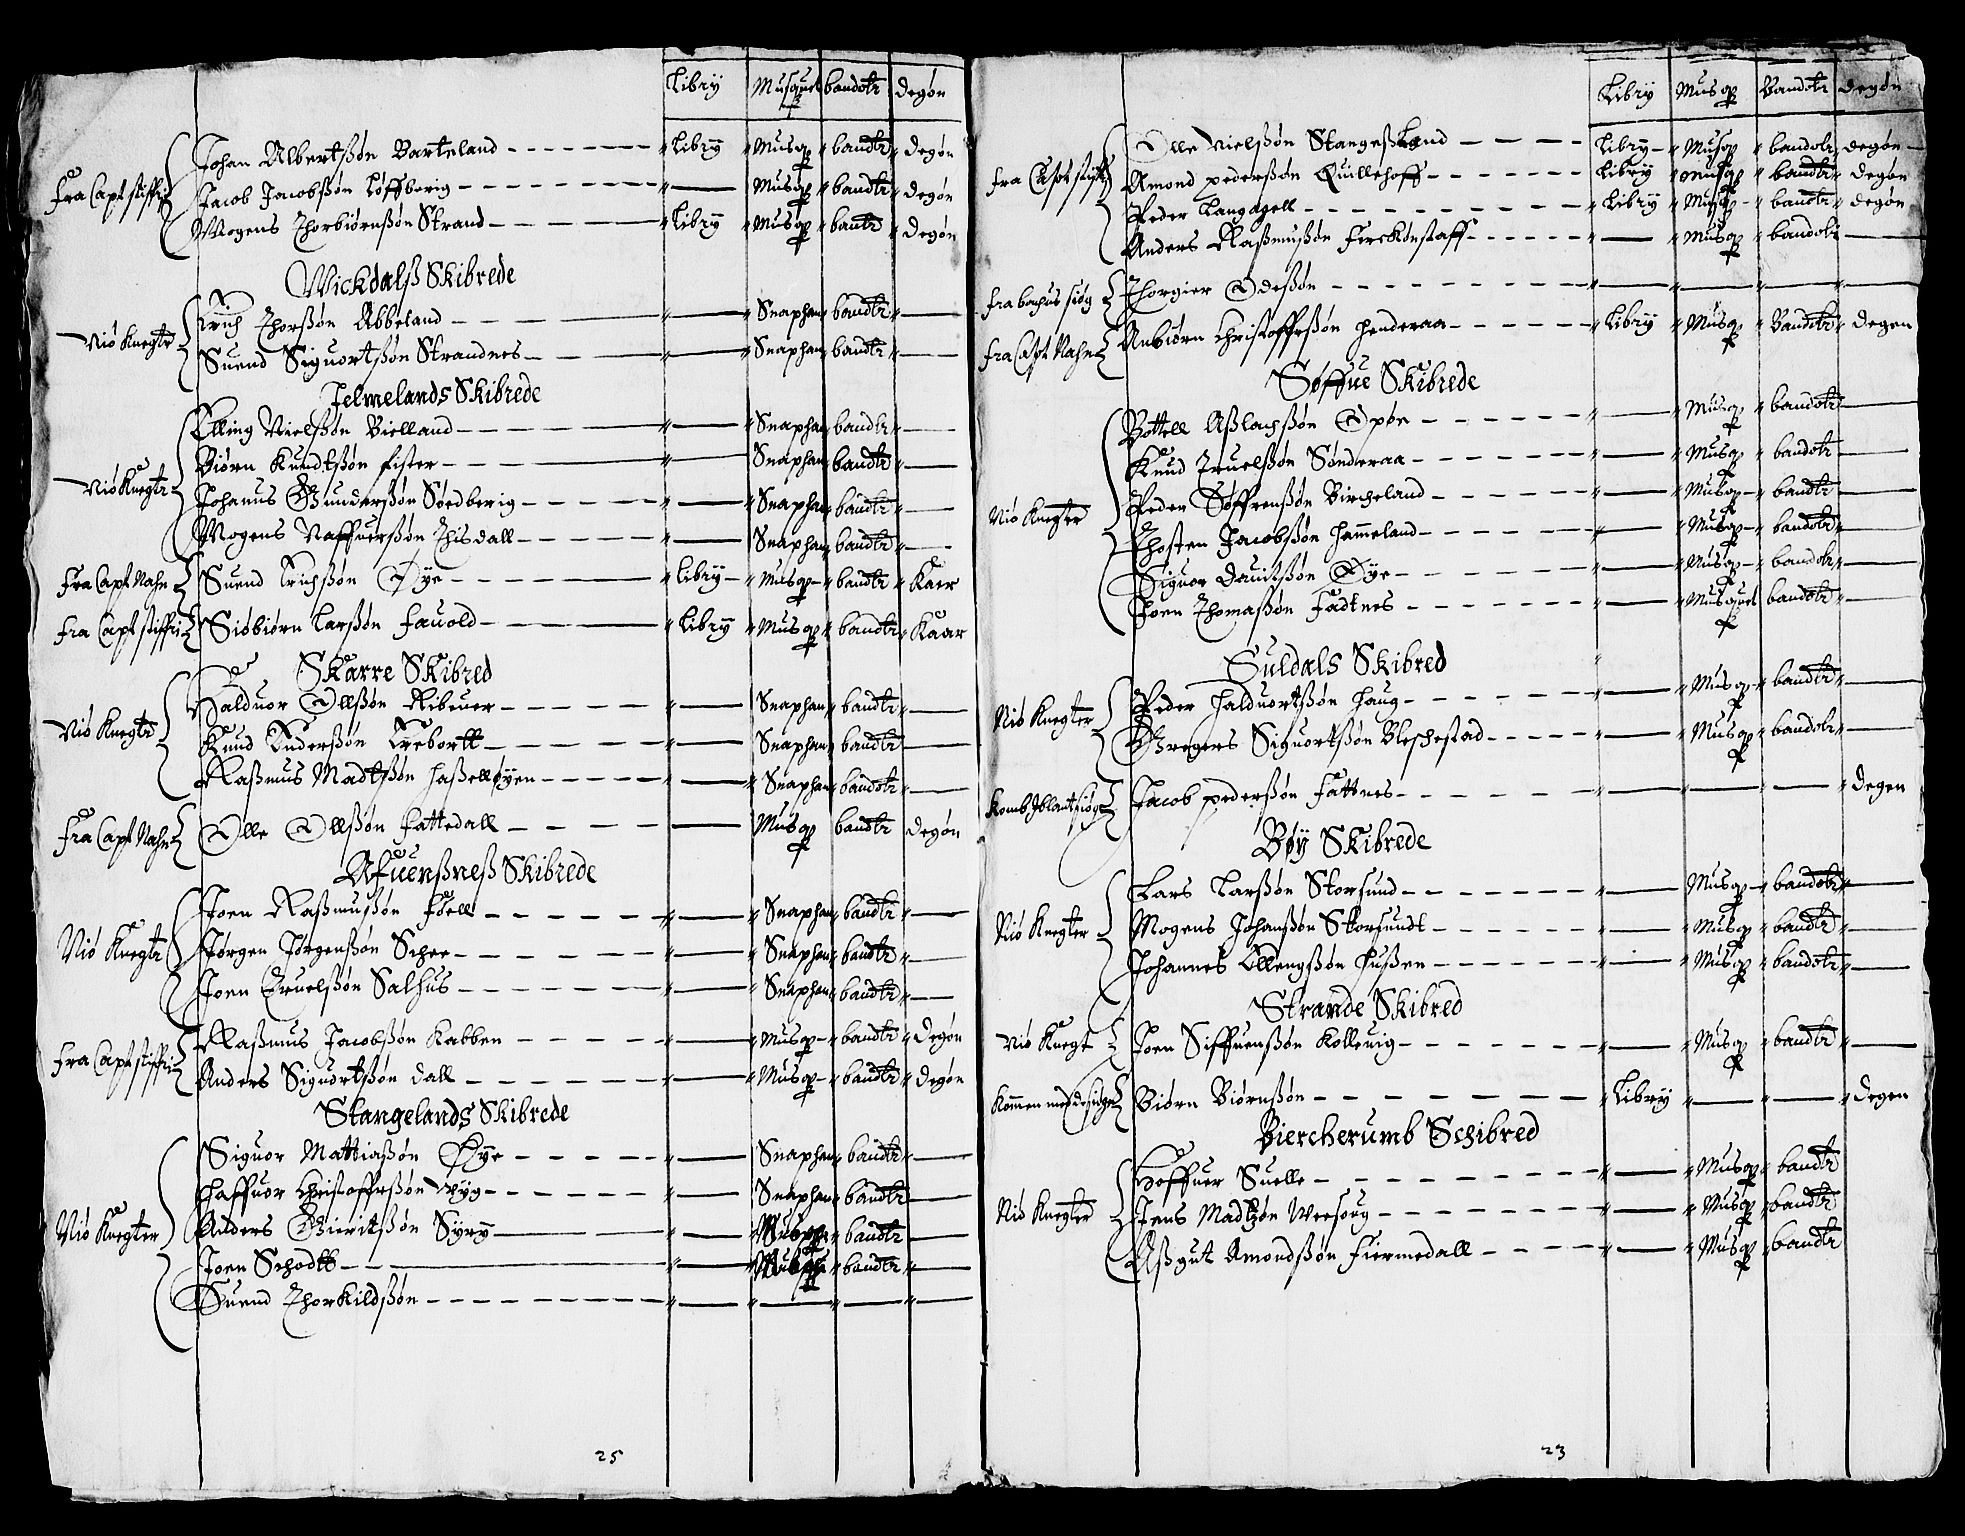 Libry Musquet bandotr degøn
Fra Capt stiffri
Johan Albertßøn Barteland Libry Musqp bandtr degøn
Jacob Jacobßøn Løffberig — Musqp bandtr degøn
Mogens Thorbiørnßøn Strand Libry Musqp bantr degøn
Wickdalß Skibrede
Niö Knegtr
Erich Thorßøn Abbeland — Snaphan bandtr —
Suend Siguortßøn Strandnes — Snaphan bandtr —
Jelmelands Skibrede
Niö Knegtr
Elling Nielßøn Bielland — Snaphan bandtr —
Biørn Knudtßøn fister — Snaphan bandtr —
Johanus Gunderßøn Søedberig — Snaphan bandtr —
Mogens Naffuerßøn Thisdall — Snaphan bandtr —
Fra Capt Nahn Suend Erichßøn Øye libry Musqp bandtr Kaer
fra Capt stiffri Siöbiørn Larßøn fauold Libry Musqp bandtr Kaar
Skarre Skibred
Niö Knegtr
Halduor Ollßøn Ribeuer — Snaphan bandtr —
Knud Anderßøn Trebortt — Snaphan bandtr —
Raßmus Madtßøn haßelløyen — Snaphan bandotr —
Fra Capt Nahn Olle Ollßøn fattedall — Musqp bandtr degøn
Afuenßneß Skibrede
Niö Knegtr
Joen Raßmußøn Foell — Snaphan bandtr —
Jørgen Jørgenßøn Schee — Snaphan bandtr —
Joen Truelßøn Salhus — Snaphan bandtr —
Fra Capt stiffri
Raßmus Jacobßøn Kabben — Musqp bandtr degøn
Anders Siguortßøn dall — Musqp bandtr degøn
Stangelands Skibrede
Niö Knegter
Siguor Mattiaßøn Øye — Snaphan bandtr —
Haffuor Christoffrßøn Wyg — Snaphan bandtr —
Anders Gieritßøn Syry — Musqp bandtr —
Joen Schodtt — Musqp bandtr —
Suend Thorkildßøn — — — —
25
Libry Musqp Bandotr degøn
fra Capt stiffri
Olle Nielßøn Stangeßland Libry Musqp bandotr degøn
Amond pederßøn Quillehoff Libry Musqp bandtr degøn
Peder Langagell Libry Musqp bandtr degøn
Anders Raßmußøn Ferckenstaff — Musqp bandotr —
fra bachus siøg Thorgier Odeßøn — — — —
fra Capt Nahn Anbiørn Christoffrßøn henderaa Libry Musqp Bandtr degen
Søffue Skibrede
Niö Knegter
Bottell Aßlachßøn Opøn — Musqp bandotr —
Knud Truelßøn Sønderaa — Musqp bandotr —
Peder Søffrenßøn Bircheland — Musqp bandtr —
Thosten Jacobßøn hammeland — Musqp bandotr —
Siguor Dauitßøn Øye — Musqp bandotr —
Joen Thomaßøn Fadtnes — Musquet bandotr —
Suldals Skibred
Niö Knegter
Peder Halduortßøn Haug — Musqp bandtr —
Gregers Siguortßøn Bleschestad — Musqp bandotr —
Jacob pederßøn Fattnes — — — degen
Bøy Skibrede
Niö Knegter
Lars Larßøn Storsund — Musqp bandotr —
Mogens Johanßøn Storsundt — Musqp bandtr —
Johannes Ellengßøn Hußen — Musqp bandotr —
Strande Skibred
Niö Knegt Joen Siffuenßøn Kolleuig — Musqp bandtr —
Biørn Biørnßøn Libry — — degen
Biercherumb Schibred
Niö Knegter
Hoffuer Suelle — Musqp bandtr
Jens Madtzøn Weesoug — Musqp bandtr
Aßgut Amondßøn Fiermedall — Musqp bandtr
23